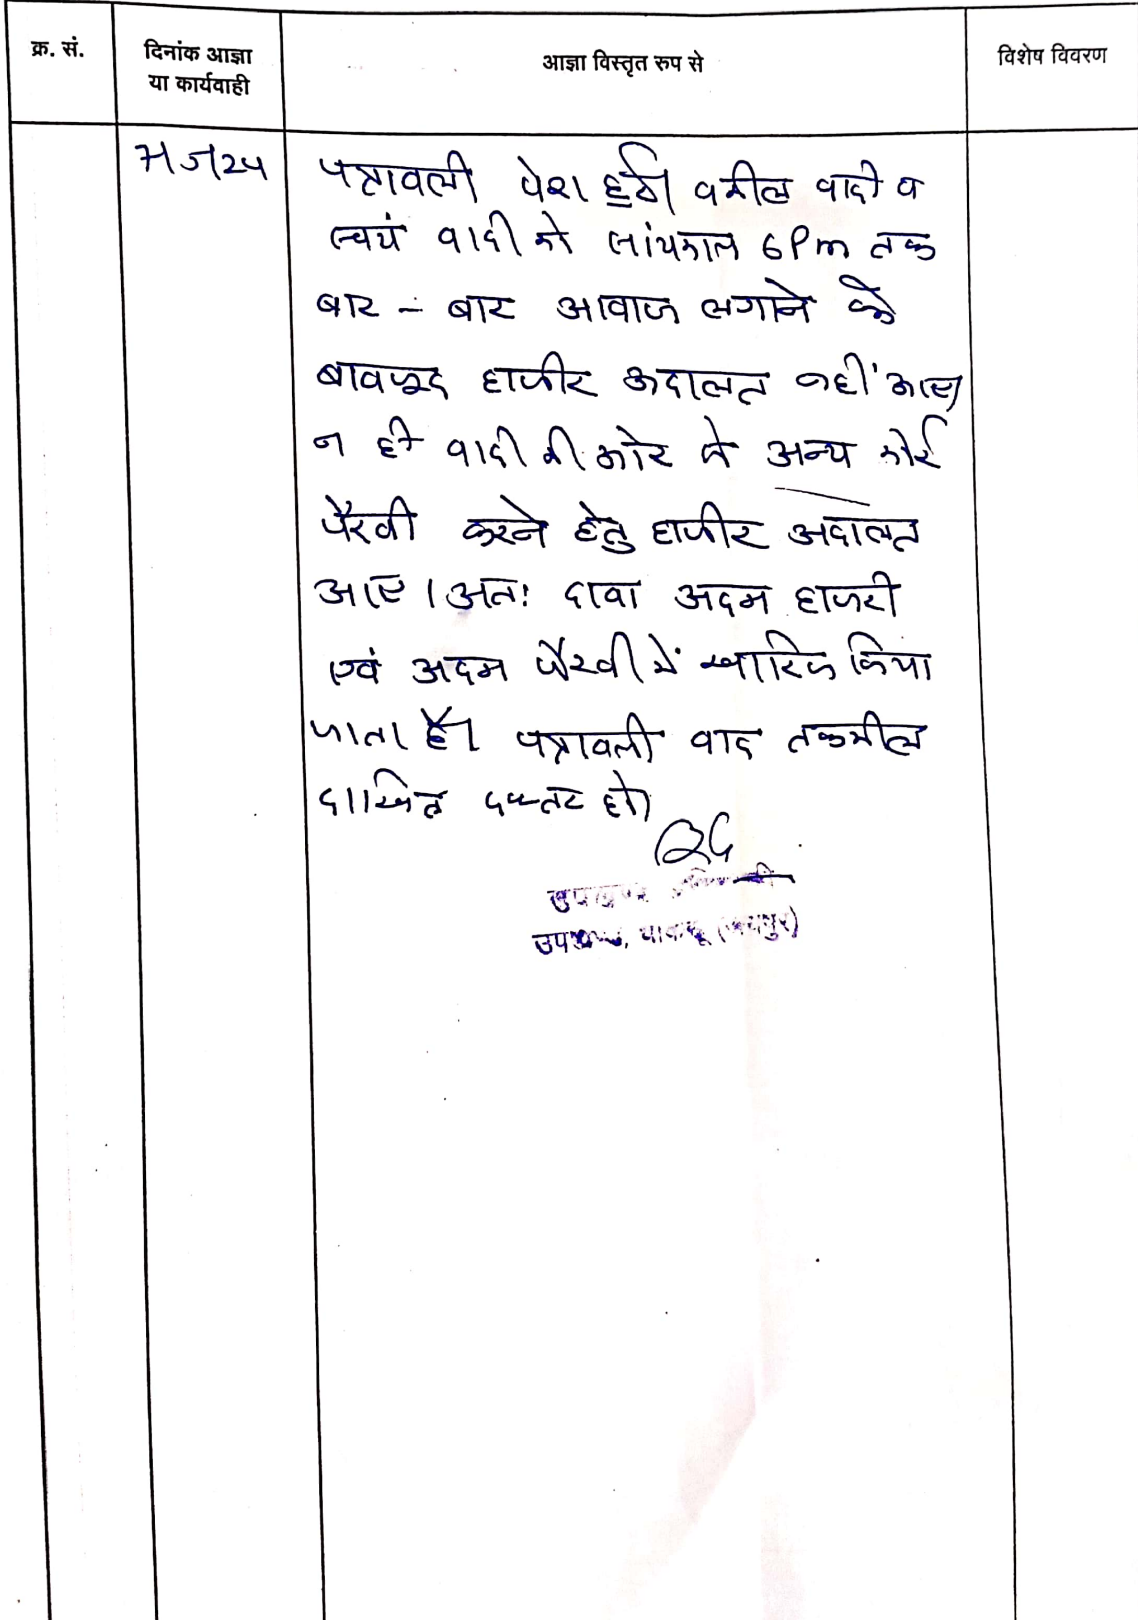 क्र. सं.
दिनांक आज्ञा
या कार्यवाही
आज्ञा विस्तृत रुप से
विशेष विवरण
पत्रावली पेश हुई। वकील वादी व
स्वयं वादी को सांयकाल 6 Pm तक
बार - बार आवाज लगाने के
बावजूद हाजीर अदालत नहीं आए
न ही वादी की ओर से अन्य कोई
पैरवी करने हेतु हाजीर अदालत
आए। अतः दावा अदम हाजरी
एवं अदम पैरवी में खारिज किया
जाता है। पत्रावली बाद तकमील
दाखिल दफ्तर हो।
उपखण्ड
उपखण्ड, चाकसू (जयपुर)